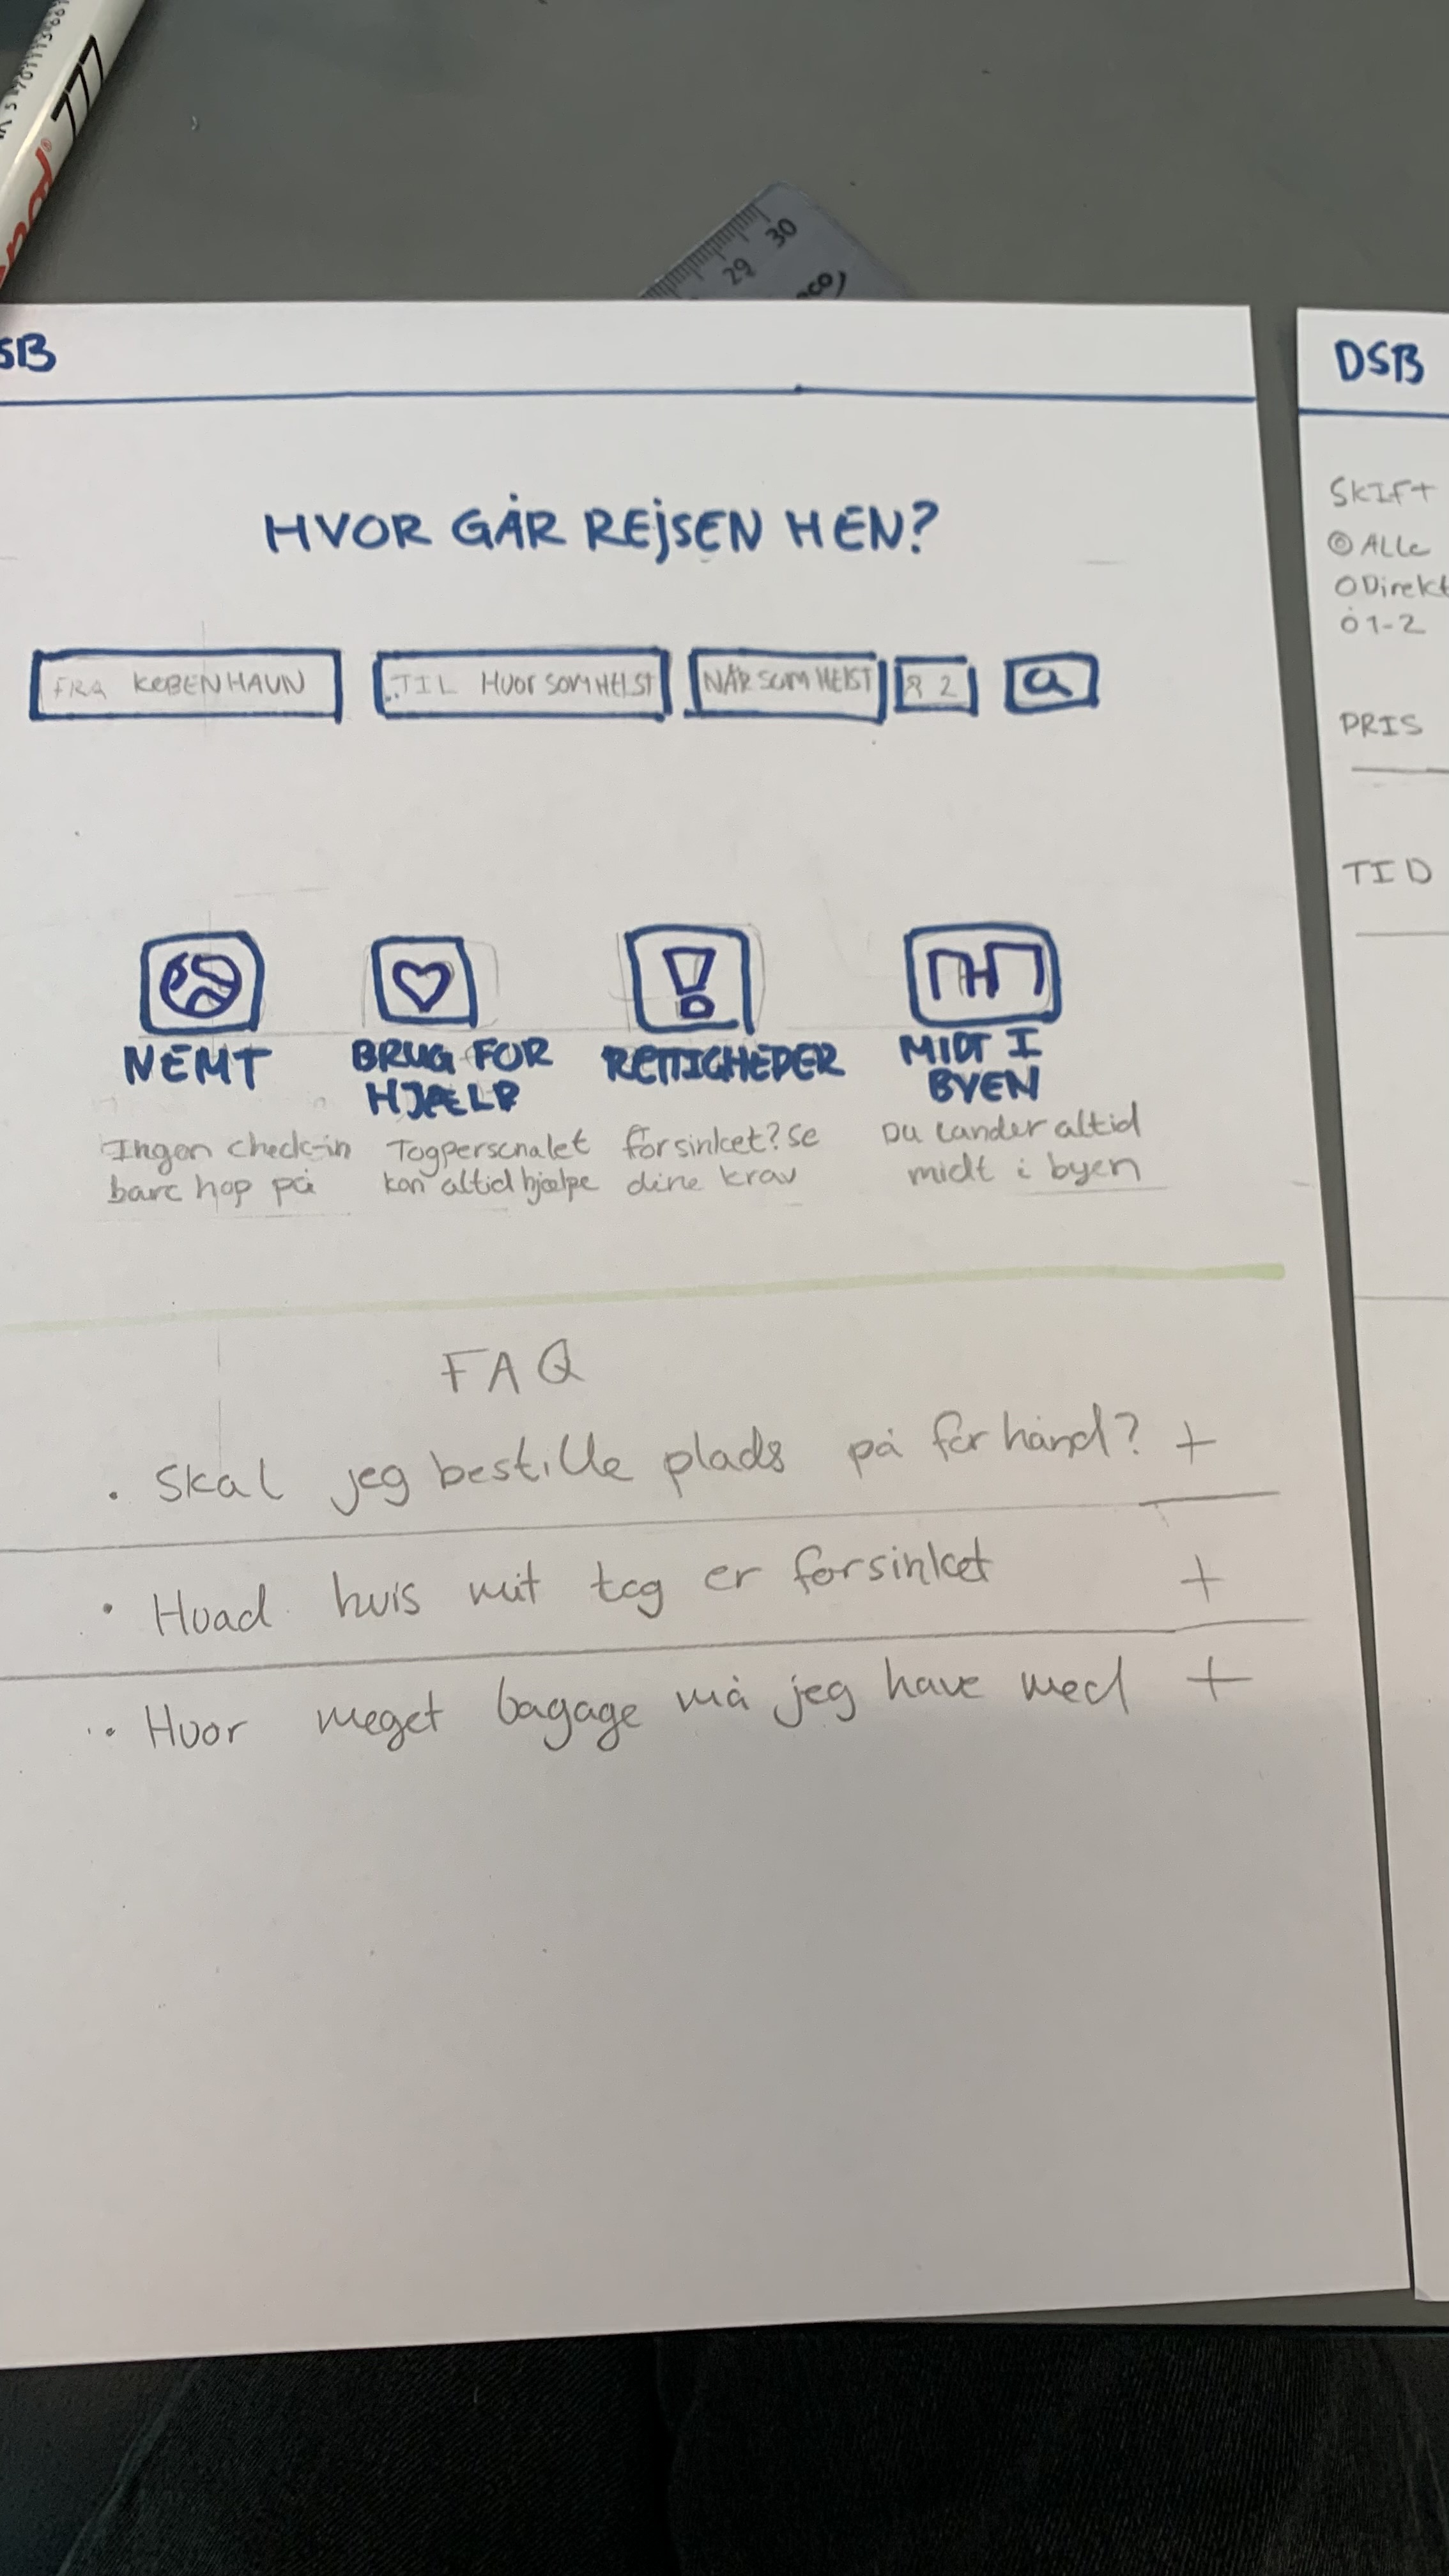 777
29 30
SB
HVOR GÅR REJSEN HEN?
FRA KØBENHAVN
TIL HVOR SOM HELST
NÅR SOM HELST
2
NEMT
Ingen check-in
bare hop på
BRUG FOR
HJÆLP
Togpersonalet
kan altid hjælpe
RETTIGHEDER
forsinket? se
dine krav
MIDT I
BYEN
Du lander altid
midt i byen
FAQ
• Skal jeg bestille plads på forhånd? +
• Hvad hvis mit tog er forsinket +
• Hvor meget bagage må jeg have med +
DSB
SKIFT
Alle
Direkt
1-2
PRIS
TID